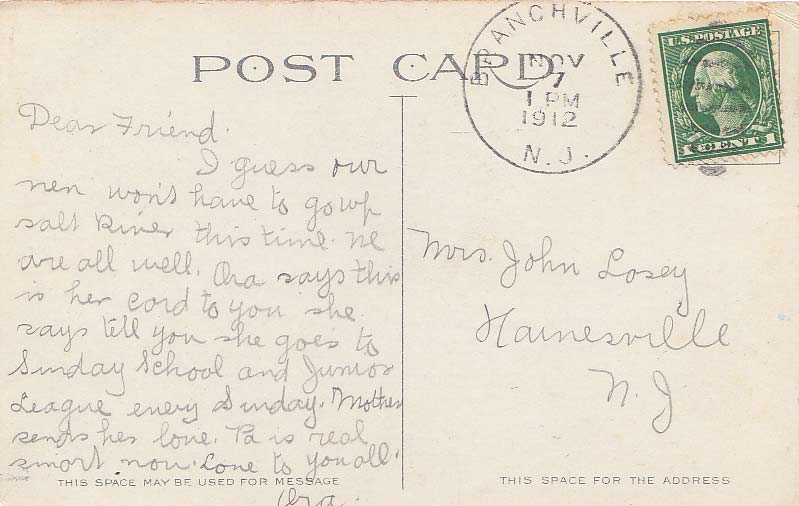 POST CARD
BRANCHVILLE
NOV
7
1 PM
1912
N. J.
U.S. POSTAGE
1 CENT 1
Dear Friend.
I guess our
men won's have to go up
salt River this time. We
are all well. Ora says this
is her card to you she
says tell you she goes to
Sunday School and Junior
League every Sunday. Mother
sends her love. Pa is real
smart now. Love to you all.
Ora.
Mrs. John Losey
Hainesville
N. J
THIS SPACE MAY BE USED FOR MESSAGE
THIS SPACE FOR THE ADDRESS